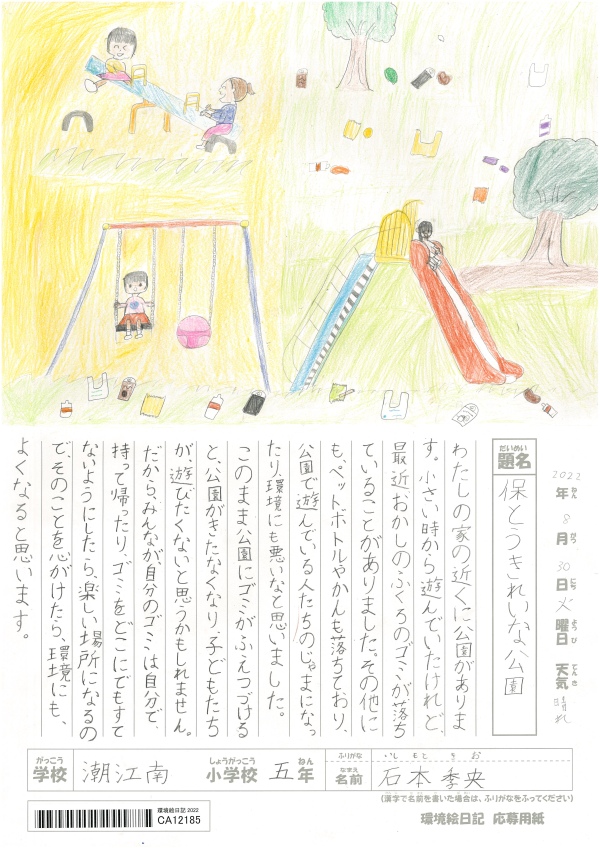 2022年8月30日火曜日 天気晴れ
ねん がつ にち ようび てんき
だいめい
題名
保とうきれいな公園
わたしの家の近くに公園がありま
す。小さい時から遊んでいたけれど、
最近、おかしのふくろのゴミが落ち
ていることがありました。その他に
も、ペットボトルやかんも落ちており、
公園で遊んでいる人たちのじゃまになっ
たり、環境にも悪いなと思いました。
このまま公園にゴミがふえつづける
と、公園がきたなくなり、子どもたち
が、遊びたくないと思うかもしれません。
だから、みんなが、自分のゴミは自分で、
持って帰ったり、ゴミをどこにでもすて
ないようにしたら、楽しい場所になるの
で、そのことを心がけたら、環境にも、
よくなると思います。
がっこう しょうがっこう ねん ふりがな いしもと きお
学校 潮江南 小学校 五年 なまえ 名前 石本季央
(漢字で名前を書いた場合は、ふりがなをふってください)
環境絵日記 2022
CA12185
環境絵日記 応募用紙